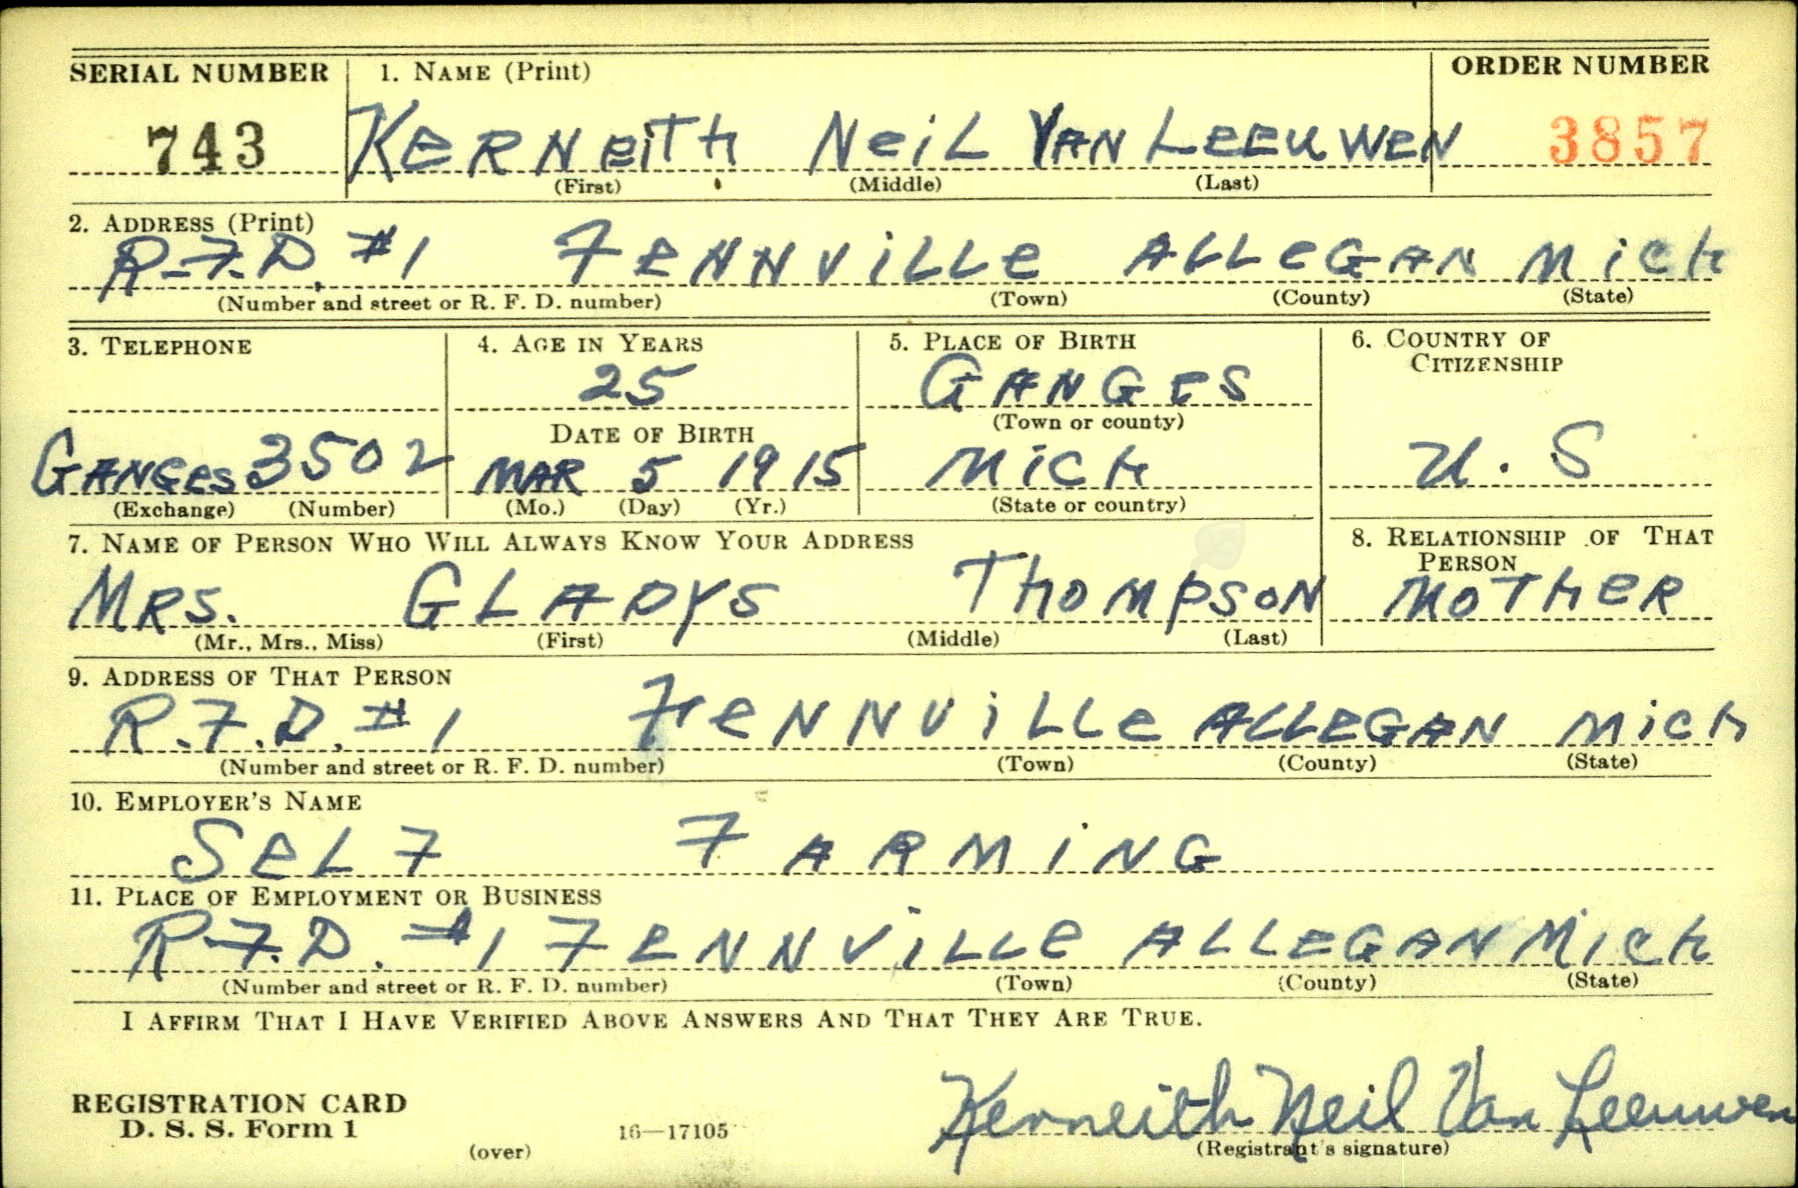 SERIAL NUMBER 1. NAME (Print) ORDER NUMBER
743 KERNEITH NEIL VAN LEEUWEN 3857
(First) (Middle) (Last)
2. ADDRESS (Print)
R.F.D. #1 FENNVILLE ALLEGAN MICH
(Number and street or R. F. D. number) (Town) (County) (State)
3. TELEPHONE 4. AGE IN YEARS 5. PLACE OF BIRTH 6. COUNTRY OF CITIZENSHIP
25 GANGES
DATE OF BIRTH (Town or county)
GANGES 3502 MAR 5 1915 MICH U. S
(Exchange) (Number) (Mo.) (Day) (Yr.) (State or country)
7. NAME OF PERSON WHO WILL ALWAYS KNOW YOUR ADDRESS 8. RELATIONSHIP OF THAT PERSON
MRS. GLADYS THOMPSON MOTHER
(Mr., Mrs., Miss) (First) (Middle) (Last)
9. ADDRESS OF THAT PERSON
R.F.D. #1 FENNVILLE ALLEGAN MICH
(Number and street or R. F. D. number) (Town) (County) (State)
10. EMPLOYER'S NAME
SELF FARMING
11. PLACE OF EMPLOYMENT OR BUSINESS
R.F.D. #1 FENNVILLE ALLEGAN MICH
(Number and street or R. F. D. number) (Town) (County) (State)
I AFFIRM THAT I HAVE VERIFIED ABOVE ANSWERS AND THAT THEY ARE TRUE.
REGISTRATION CARD
D. S. S. Form 1 16—17105 Kerneith Neil Van Leeuwen
(over) (Registrant's signature)